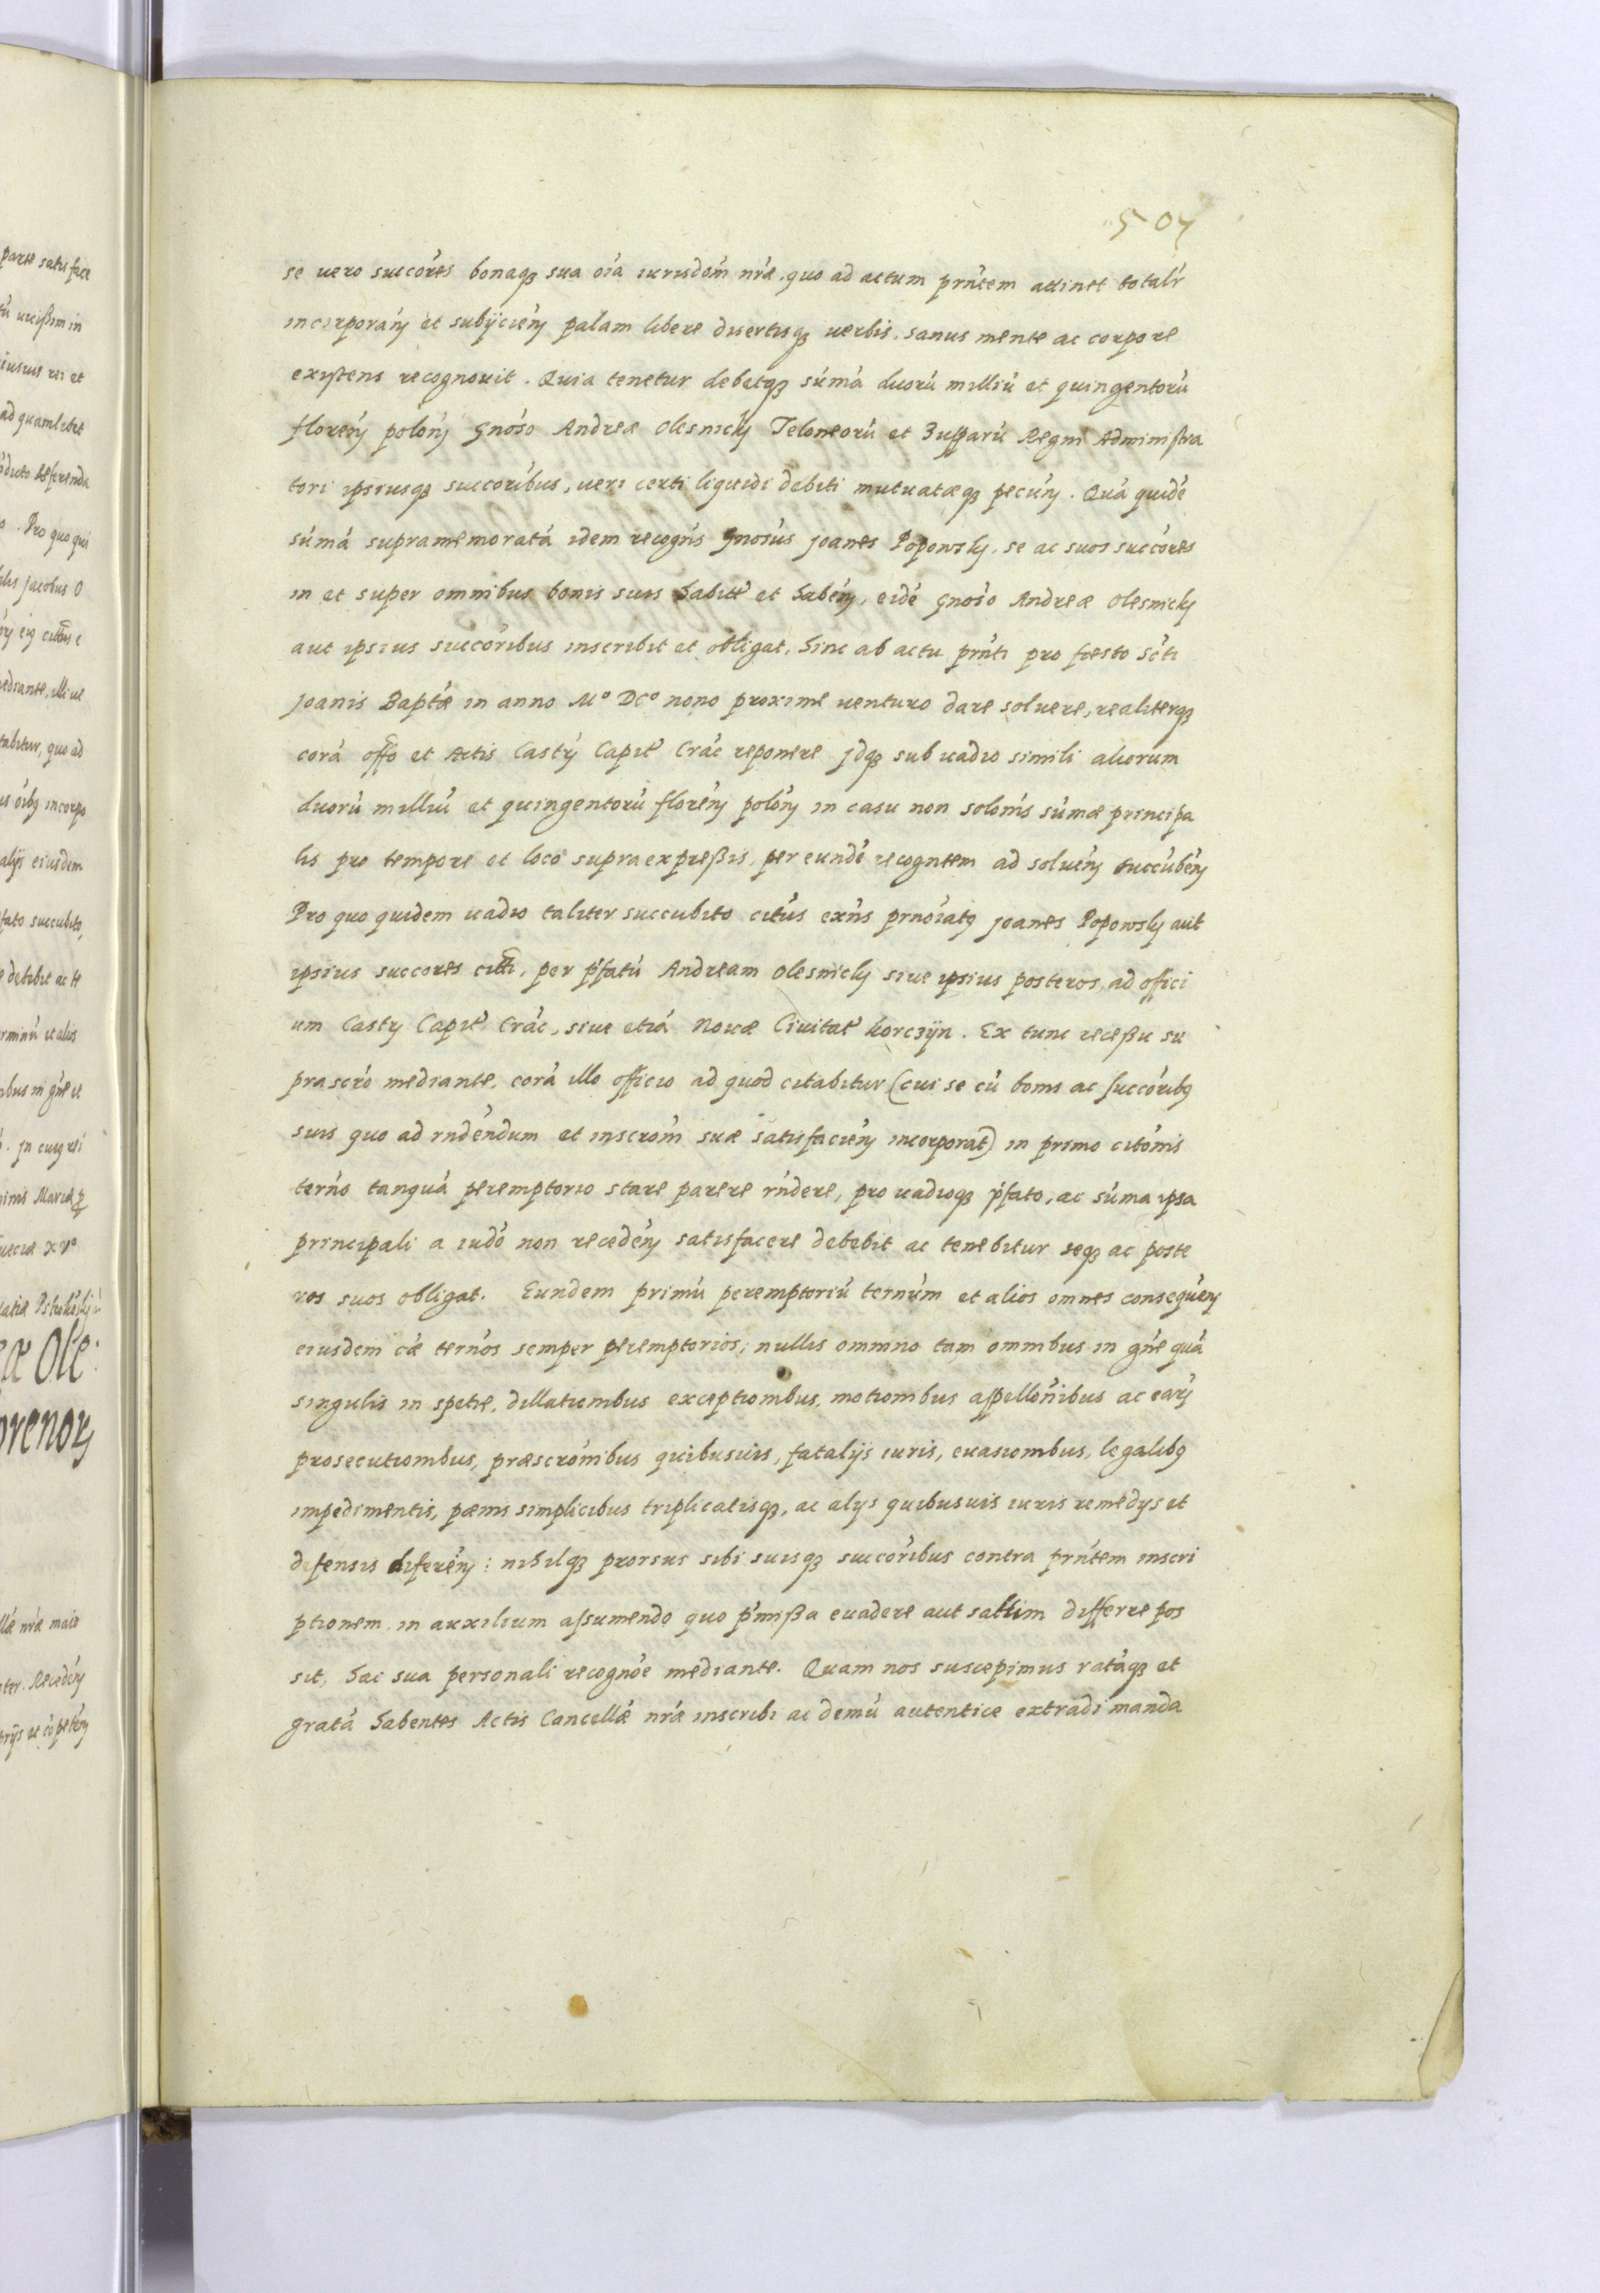 507
se uero succo͠res bonaq₃ sua o͠ia iurisdo͠m n͠ræ, quo ad actum pr͠ntem attinet total͠r
incorpora͠n et subijcie͠n palam libere disertisq₃ uerbis, sanus mente ac corpore
existens recognouit. Quia tenetur debetq₃ súmá duorú milliú et quingentorú
flore͠n polo͠n G͠noso Andreæ Olesnicky Teloneorú et Zupparú Regni Administra
tori ipsiusq₃ succo͠ribus, ueri certi liquidi debiti mutuatæq₃ pecu͠n. Quá quidé
súmá supramemoratá idem recog͠ns G͠nosus Joanes Popowsky, se ac suos succo͠res
in et super omnibus bonis suis habit͠ et habe͠n, eidé G͠noso Andreæ Olesnicky
aut ipsius succo͠ribus inscribit et obligat, hinc ab actu pr͠nti pro fæsto S͠cti
Joanis Bap͠tæ in anno Mº DCº nono proxime uenturo dare soluere, realiterq₃
corá off͠o et Actis Cast͠r Capit͠ Cra͠c reponere jdq₃ sub uadio simili aliorum
duorú milliú et quingentorú flore͠n polo͠n in casu non solo͠nis súmæ principa
lis pro tempore et loco supraexpreßis, per eundé recogntem ad solue͠n succube͠n
Pro quo quidem uadio taliter succubito cit͠us ex͠ns prno͠iatꝯ Joanes Popowsky aut
ipsius succores citt͠i, per p͠rfatú Andream Olesnicky siue ipsius posteros, ad offici
um Cast͠r Capit͠ Cra͠c, siue etiá Nouæ Ciuitat͠ Korczÿn. Ex tunc receßu su
prascr͠o mediante, corá illo officio ad quod citabitur (cui se cú bonis ac succo͠ribꝯ
suis quo ad rndéndum et inscro͠m suæ satisfacie͠n incorporat) in primo cito͠nis
ter͠no tanquá peremptorio stare parere r͠ndere, pro uadioq₃ p͠rfato, ac súma ipsa
principali a iud͠o non recede͠n satisfacere debebit ac tenebitur seq₃ ac poste
ros suos obligat. Eundem primú peremptoriú ter͠num et alios omnes conseque͠n
eiusdem c͠æ ter͠nos semper peremptorios; nullis omnino tam omnibus in g͠ne quá
singulis in spetie, dillationibus exceptionibus, motionibus appello͠nibus ac ear͠
prosecutionibus, præscro͠nibus quibusuis, fatalijs iuris, euasionibus, legalibꝯ
impedimentis, pænis simplicibus triplicatisq₃, ac alys quibusuis iuris remedys et
difensis difere͠n: nihilq₃ prorsus sibi suisq₃ succo͠ribus contra pr͠ntem inscri
ptionem in auxilium assumendo quo p͠rmißa euadere aut saltim differre pos
sit, hac sua personali recogno͠e mediante. Quam nos suscepimus ratáq₃ et
gratá habentes Actis Cancell͠æ n͠ræ inscribi ac demú autentice extradi manda